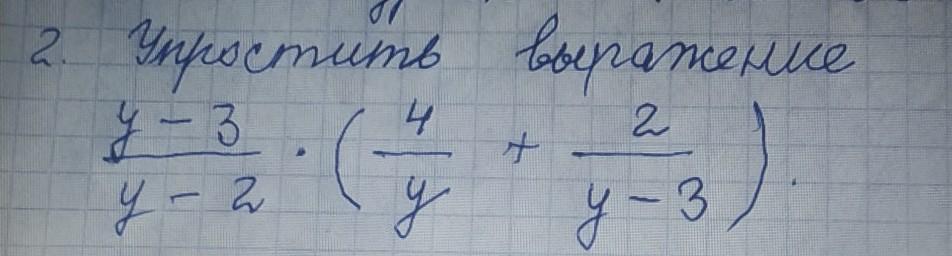 2. Упростить выражение
y - 3 / y - 2 · ( 4 / y + 2 / y - 3 ).